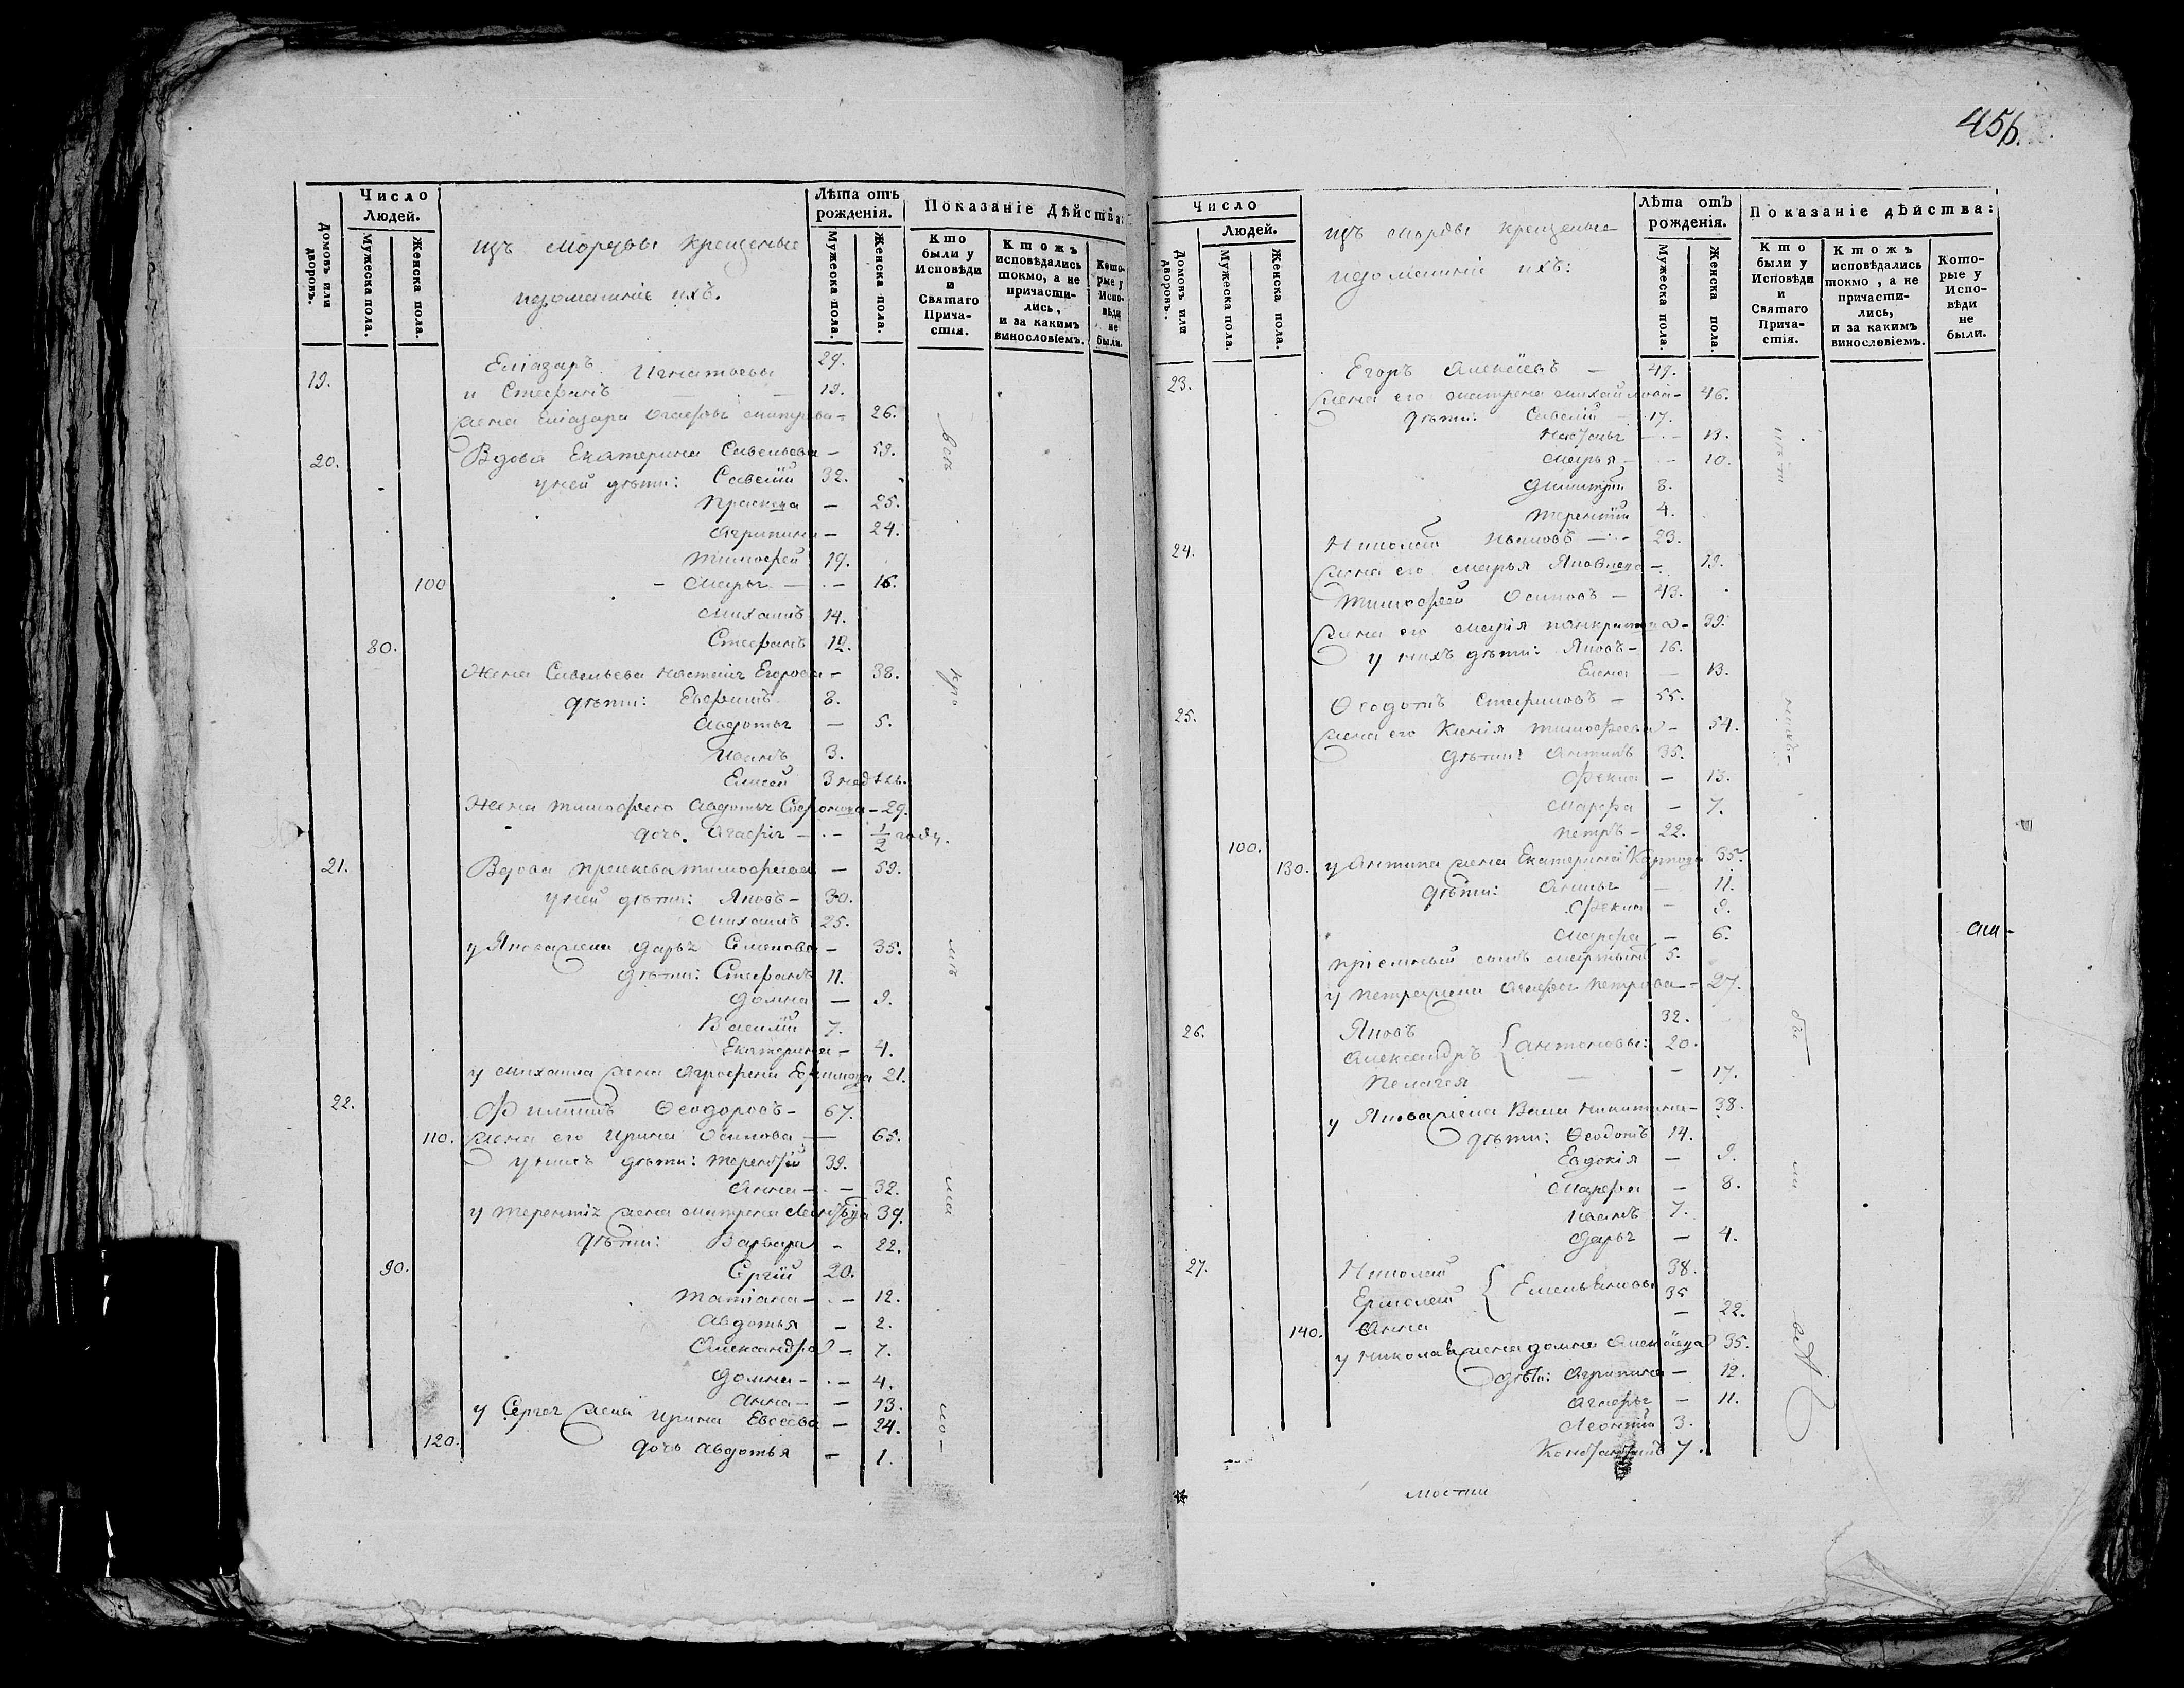 456.
Домовъ или дворовъ.
Число
Людей.
Мужеска пола.
Женска пола.
изъ мордвы крещеные
идомашніе ихъ.
Лѣта отъ
рожденія.
Мужеска пола.
Женска пола.
Показаніе Дѣйства:
Кто были у Исповѣди и Святаго Прича-стія.
Ктожъ исповѣдались токмо, а не причасти-лись, и за какимъ винословіемъ.
Кото-рые у Испо-вѣди не были.
19. Еліазаръ Игнатьевы 29.
и Стефанъ — 19.
жена Еліазара Агаѳья — 26.
20. Вдова Екатерина Савельева — 59.
уней дѣти: Савелій 32.
Праскева — 25.
Агрипина — 24.
Тимоѳей 19.
100 — Марья — 16.
Михаилъ 14.
80. Стефанъ 12.
Жена Савельева Егорова — 38.
дѣти: Ефимъ 8.
Авдотья — 5.
Иванъ 3.
Елисей 3 недѣль.
Жена Тимоѳея Авдотья — 29.
дочь Агаѳья — 1/2 году.
21. Вдова Праскева Тимоѳеева — 59.
уней дѣти: Яковъ — 30.
Михаилъ 25.
у Якова жена Дарья Семенова — 35.
дѣти: Стефанъ 11.
Домна — 9.
Василій 7.
Екатерина — 4.
у Михаила жена Агрофена 21.
22. Филипъ Ѳеодоровъ — 67.
110. жена его Ирина Осипова — 65.
у нихъ дѣти: Терентій 39.
Анна — 32.
у Терентія жена Матрена 39.
дѣти: Варвара — 22.
90. Сергій 20.
Татіана — 12.
Авдотья — 2.
Александра — 7.
Домна — 4.
Анна — 13.
у Сергея жена Ирина Евсеева — 24.
120. дочь Авдотья — 1.
Домовъ или дворовъ.
Число
Людей.
Мужеска пола.
Женска пола.
изъ морды крещеные
идомашніе ихъ:
Лѣта отъ
рожденія.
Мужеска пола.
Женска пола.
Показаніе дѣйства:
Кто были у Исповѣди и Святаго Прича-стія.
Ктожъ исповѣдались токмо, а не причасти-лись, и за какимъ винословіемъ.
Кото-рые у Испо-вѣди не были.
23. Егоръ Алексѣевъ — 49.
жена его Матрена Михайлова — 46.
дѣти: Савелій 17.
Настасья — 13.
Марья — 10.
Димитрій 8.
Терентій 4.
24. Николай Ивановъ — 23.
жена его Марья Яковлева — 19.
Тимоѳей Осиповъ — 43.
жена его Марія — 39.
у нихъ дѣти: Яковъ — 16.
Елена — 13.
25. Ѳеодотъ Стефановъ — 55.
жена его Ксенія Тимоѳеева — 54.
дѣти: Антипъ 35.
Фекла — 13.
Марфа — 7.
Петръ — 22.
100. 130. у Антипа жена Екатерина Карпова 35.
дѣти: Анисья — 11.
Фекла — 9.
Марфа — 6.
пріемный сынъ 5.
у Петра жена Агаѳья Петрова — 27.
26. Яковъ 32.
Александръ { Антоновы: 20.
Пелагея — 17.
у Якова жена Никитина — 38.
дѣти: Ѳеодотъ 14.
Евдокія — 9.
Марфа — 8.
Иванъ 7.
Дарья — 4.
27. Николай 38.
Ермолай { Емельяновы 35
140. Анна — 22.
у Николая жена Домна Алексѣева 35.
дѣти: Агрипина — 12.
Агаѳья — 11.
Леонтій 3.
Константинъ 7.